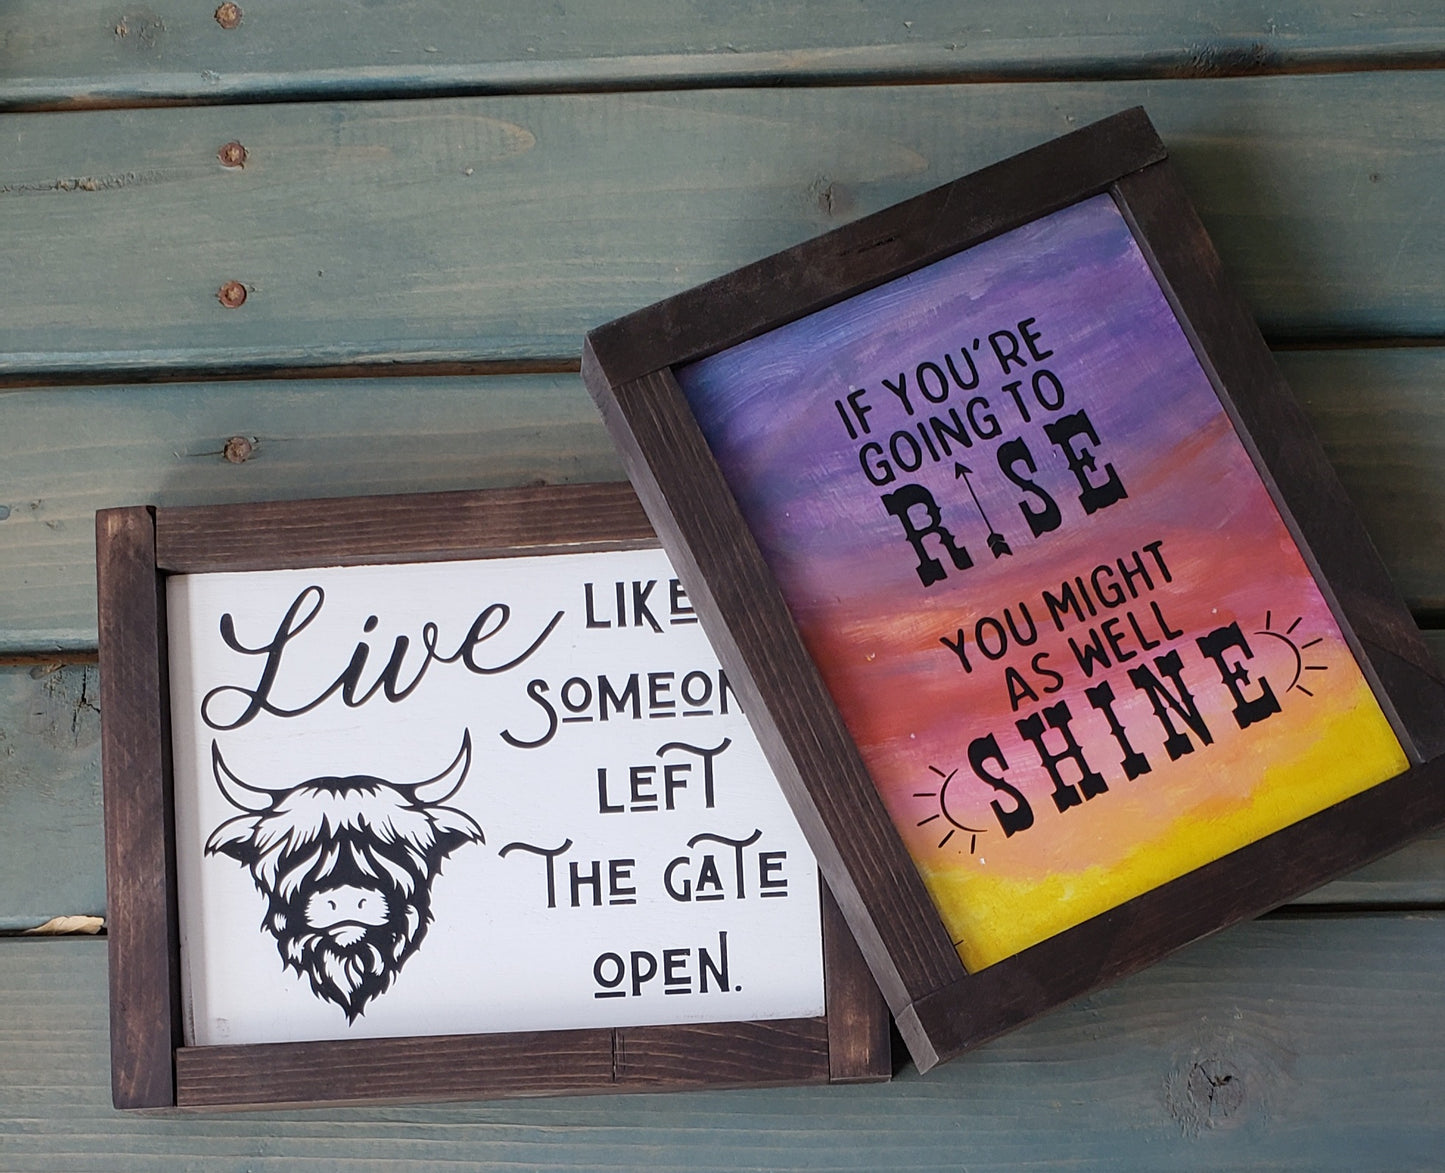 Live LIKE
SOMEON
LEFT
THE GATE
OPEN.
IF YOU'RE
GOING TO
RISE
YOU MIGHT
AS WELL
SHINE